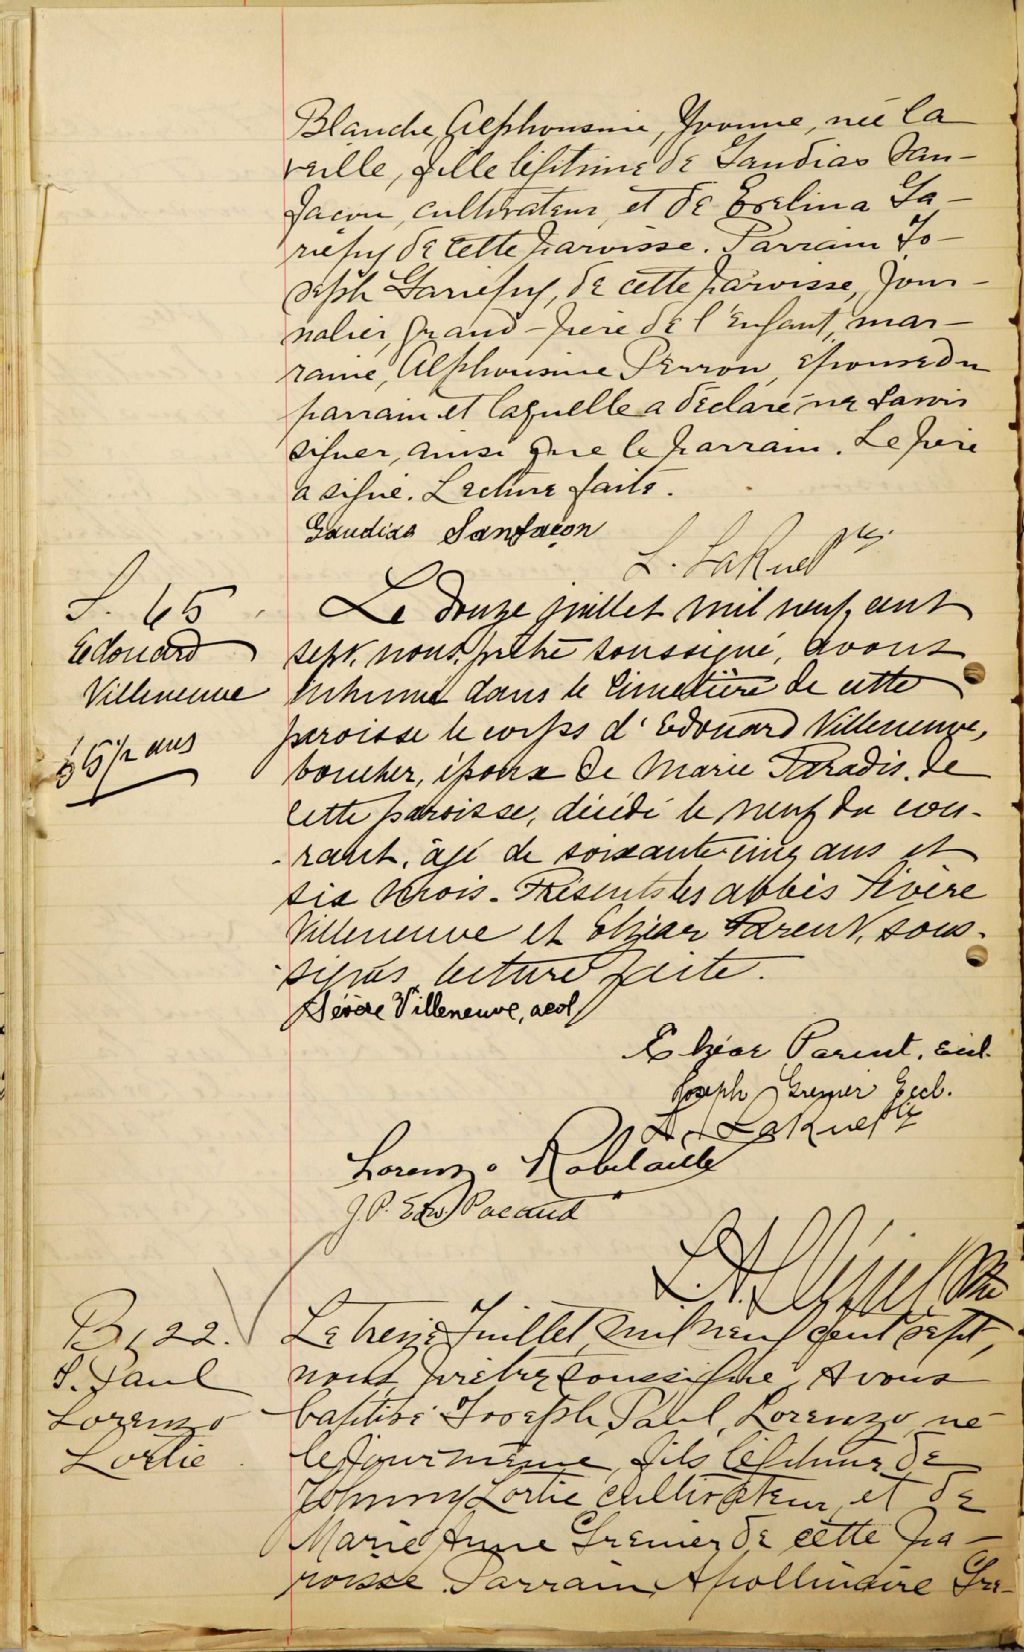 Blanche, Alphonsine, Yvonne, née la
veille, fille légitime de Gaudias San-
façon, cultivateur, et de Evelina Ga-
riépy de cette paroisse. Parrain Jo-
seph Gariépy, de cette paroisse, jour-
nalier, grand-père de l'enfant, mar-
raine, Alphonsine Perron, épouse du
parrain et laquelle a déclaré ne savoir
signer, ainsi que le parrain. Le père
a signé. Lecture faite.
Gaudias Sanfaçon
S. 65
Edouard
Villeneuve
65 1/2 ans
Le douze juillet mil neuf cent
sept, nous, prêtre soussigné, avons
inhumé dans le cimetière de cette
paroisse le corps d'Edouard Villeneuve,
boucher, époux de Marie Paradis, de
cette paroisse, décédé le neuf du cou-
rant, âgé de soixante cinq ans et
six mois. Présents les abbés Sévère
Villeneuve et Elzéar Parent, sous-
signés, lecture faite.
Sévère Villeneuve, acol
Elzéar Parent, eccl.
Joseph Grenier Eccl.
Lorenzo Robitaille
J. P. Edw. Pacaud
B, 22.
J. Paul
Lorenzo
Lortie
Le treize Juillet, mil neuf cent sept,
nous prêtre soussigné, avons
baptisé Joseph, Paul, Lorenzo, né
le jour même, fils légitime de
Johnny Lortie cultivateur, et de
Marie Anne Grenier de cette pa-
roisse. Parrain, Apollinaire Gre-